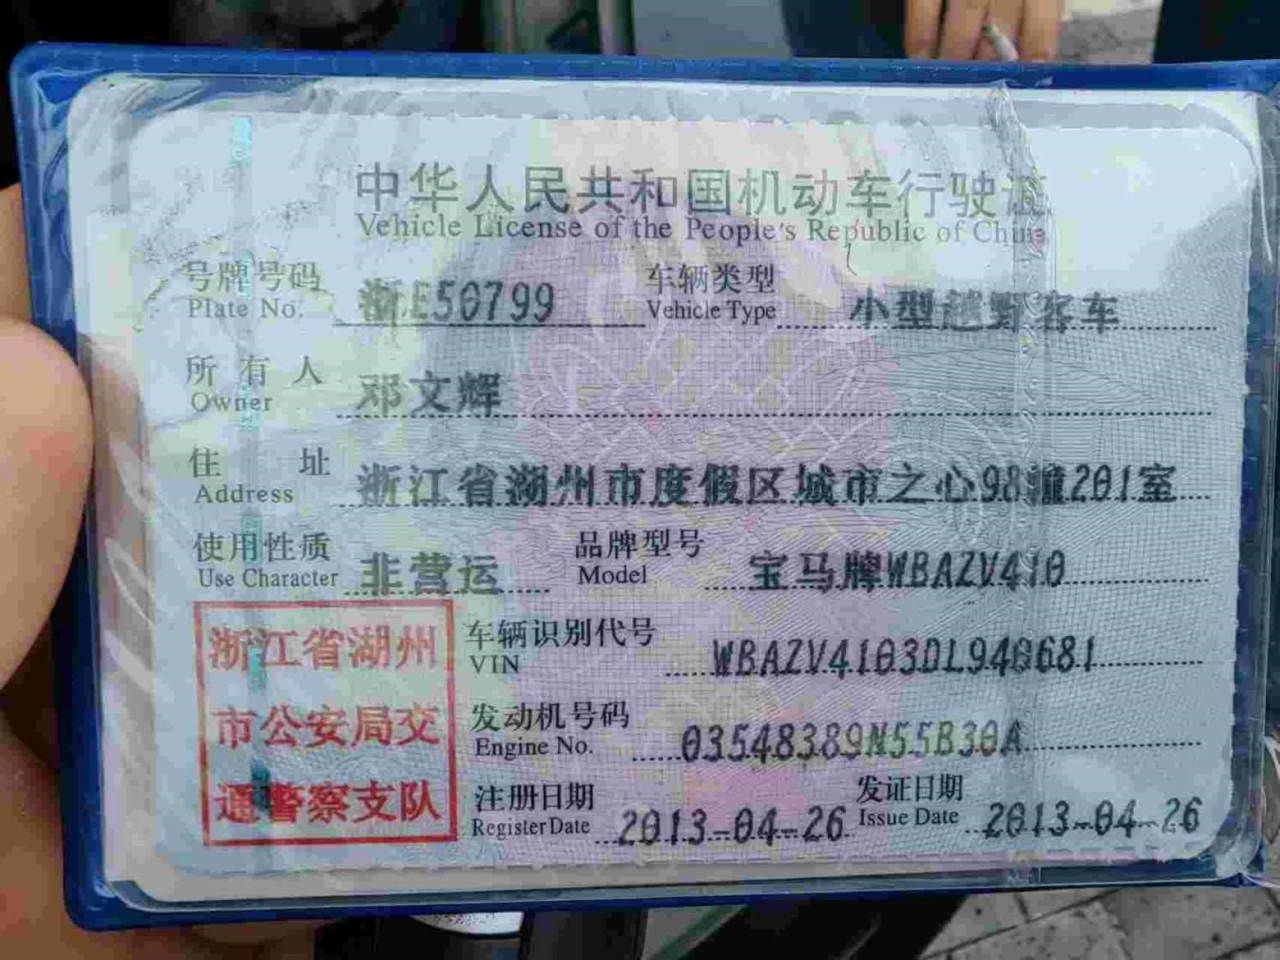 中华人民共和国机动车行驶证
Vehicle License of the People's Republic of China
号牌号码 浙E50799 车辆类型 小型越野客车
Plate No. Vehicle Type
所有人 邓文辉
Owner
住址 浙江省湖州市度假区城市之心98幢201室
Address
使用性质 非营运 品牌型号 宝马牌WBAZV410
Use Character Model
浙江省湖州
市公安局交
通警察支队
车辆识别代号 WBAZV4103DL940681
VIN
发动机号码 03548389N55B30A
Engine No.
注册日期 2013-04-26 发证日期 2013-04-26
Register Date Issue Date